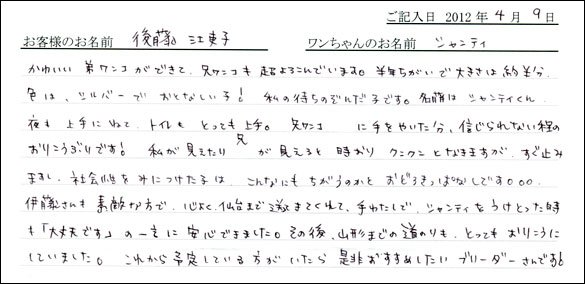 ご記入日 2012年4月9日
お客様のお名前 後藤 江東子 ワンちゃんのお名前 シャンティ
かわいい弟ワンコができて、兄ワンコも超よろこんでいます。半年ちがいで大きさは約半分。
色は、シルバーでおとなしい子! 私の待ちのぞんだ子です。名前はシャンティくん。
夜も上手にねて、トイレもとっても上手。兄ワンコ に手をやいた分、信じられない程の
おりこうぶりです! 私が見えたり兄が見えると時おりクンクンとなきますが、すぐ止み
ますし、社会性をみにつけた子は、こんなにもちがうのかとおどろきっぱなしです○○○
伊藤さんも素敵な方で、心よく仙台まで連れてきてくれて、手わたしで、シャンティをうけとった時
も「大丈夫です」の一言に安心できました。その後、山形までの道のりも、とってもおりこうに
していました。これから予定している方がいたら是非おすすめしたいブリーダーさんです!